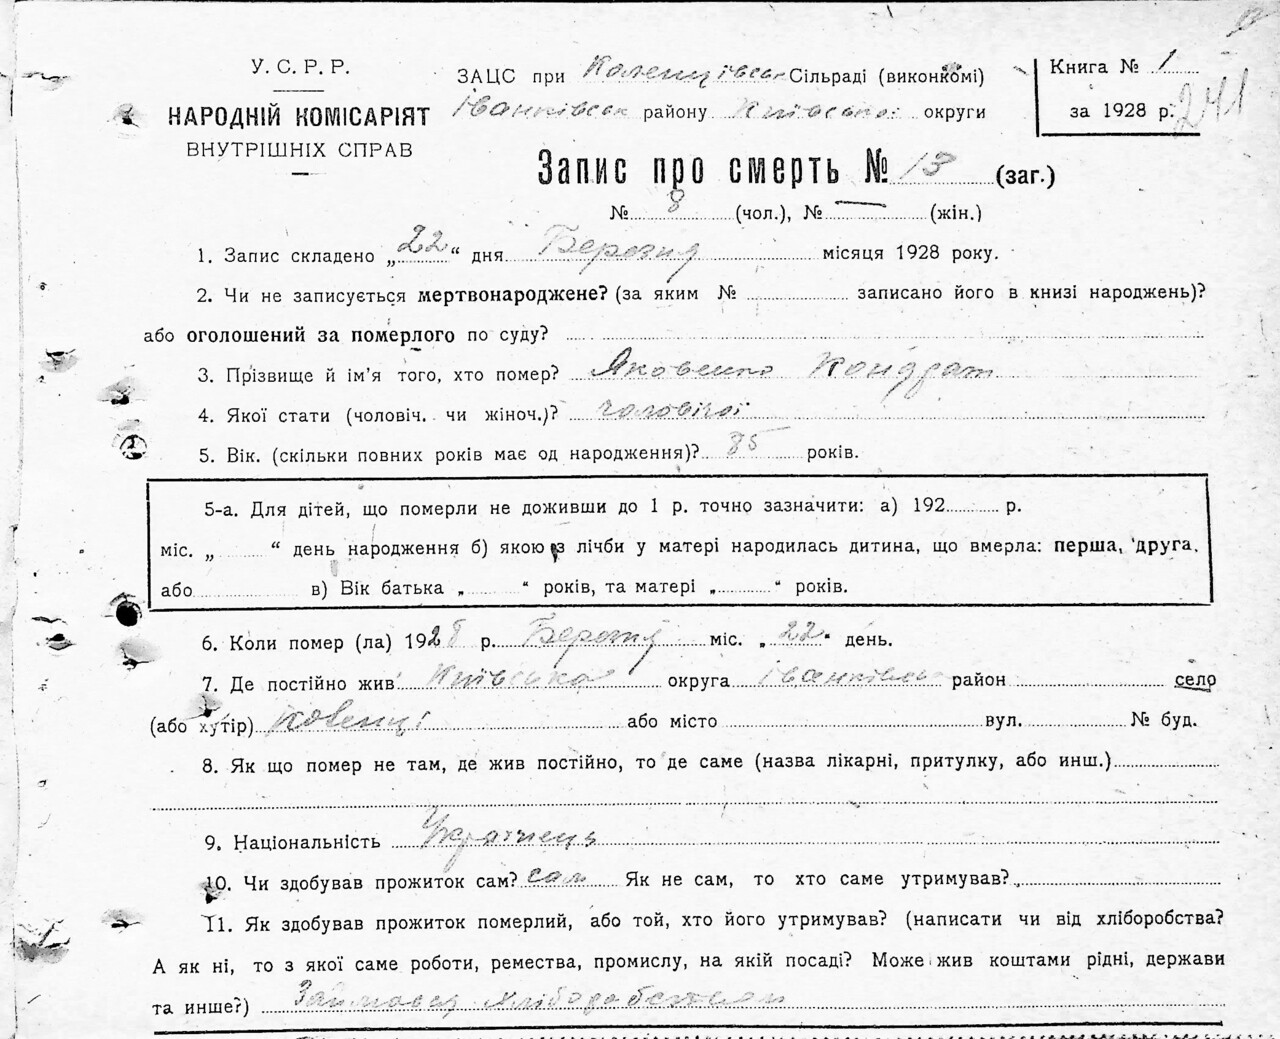 У. С. Р. Р.
НАРОДНІЙ КОМІСАРІЯТ
ВНУТРІШНІХ СПРАВ
ЗАЦС при Коленцівськ Сільраді (виконкомі)
Іванківськ району Київської округи
Книга № 1
за 1928 р.
241
Запис про смерть № 13 (заг.)
№ 8 (чол.), № — (жін.)
1. Запис складено „22“ дня Березня місяця 1928 року.
2. Чи не записується мертвонароджене? (за яким № записано його в книзі народжень)?
або оголошений за померлого по суду?
3. Прізвище й ім'я того, хто помер? Яковенко Кондрат
4. Якої стати (чоловіч. чи жіноч.)? чоловічої
5. Вік. (скільки повних років має од народження)? 85 років.
5-а. Для дітей, що померли не доживши до 1 р. точно зазначити: а) 192 р.
міс. „ “ день народження б) якою з лічби у матері народилась дитина, що вмерла: перша, друга,
або в) Вік батька „ “ років, та матері „ “ років.
6. Коли помер (ла) 1928 р. Березня міс. „22“ день.
7. Де постійно жив Київська округа Іванківськ район село
(або хутір) Коленці або місто вул. № буд.
8. Як що помер не там, де жив постійно, то де саме (назва лікарні, притулку, або инш.)
9. Національність Українець
10. Чи здобував прожиток сам? сам Як не сам, то хто саме утримував?
11. Як здобував прожиток померлий, або той, хто його утримував? (написати чи від хліборобства?
А як ні, то з якої саме роботи, ремества, промислу, на якій посаді? Може жив коштами рідні, держави
та инше?) Займався